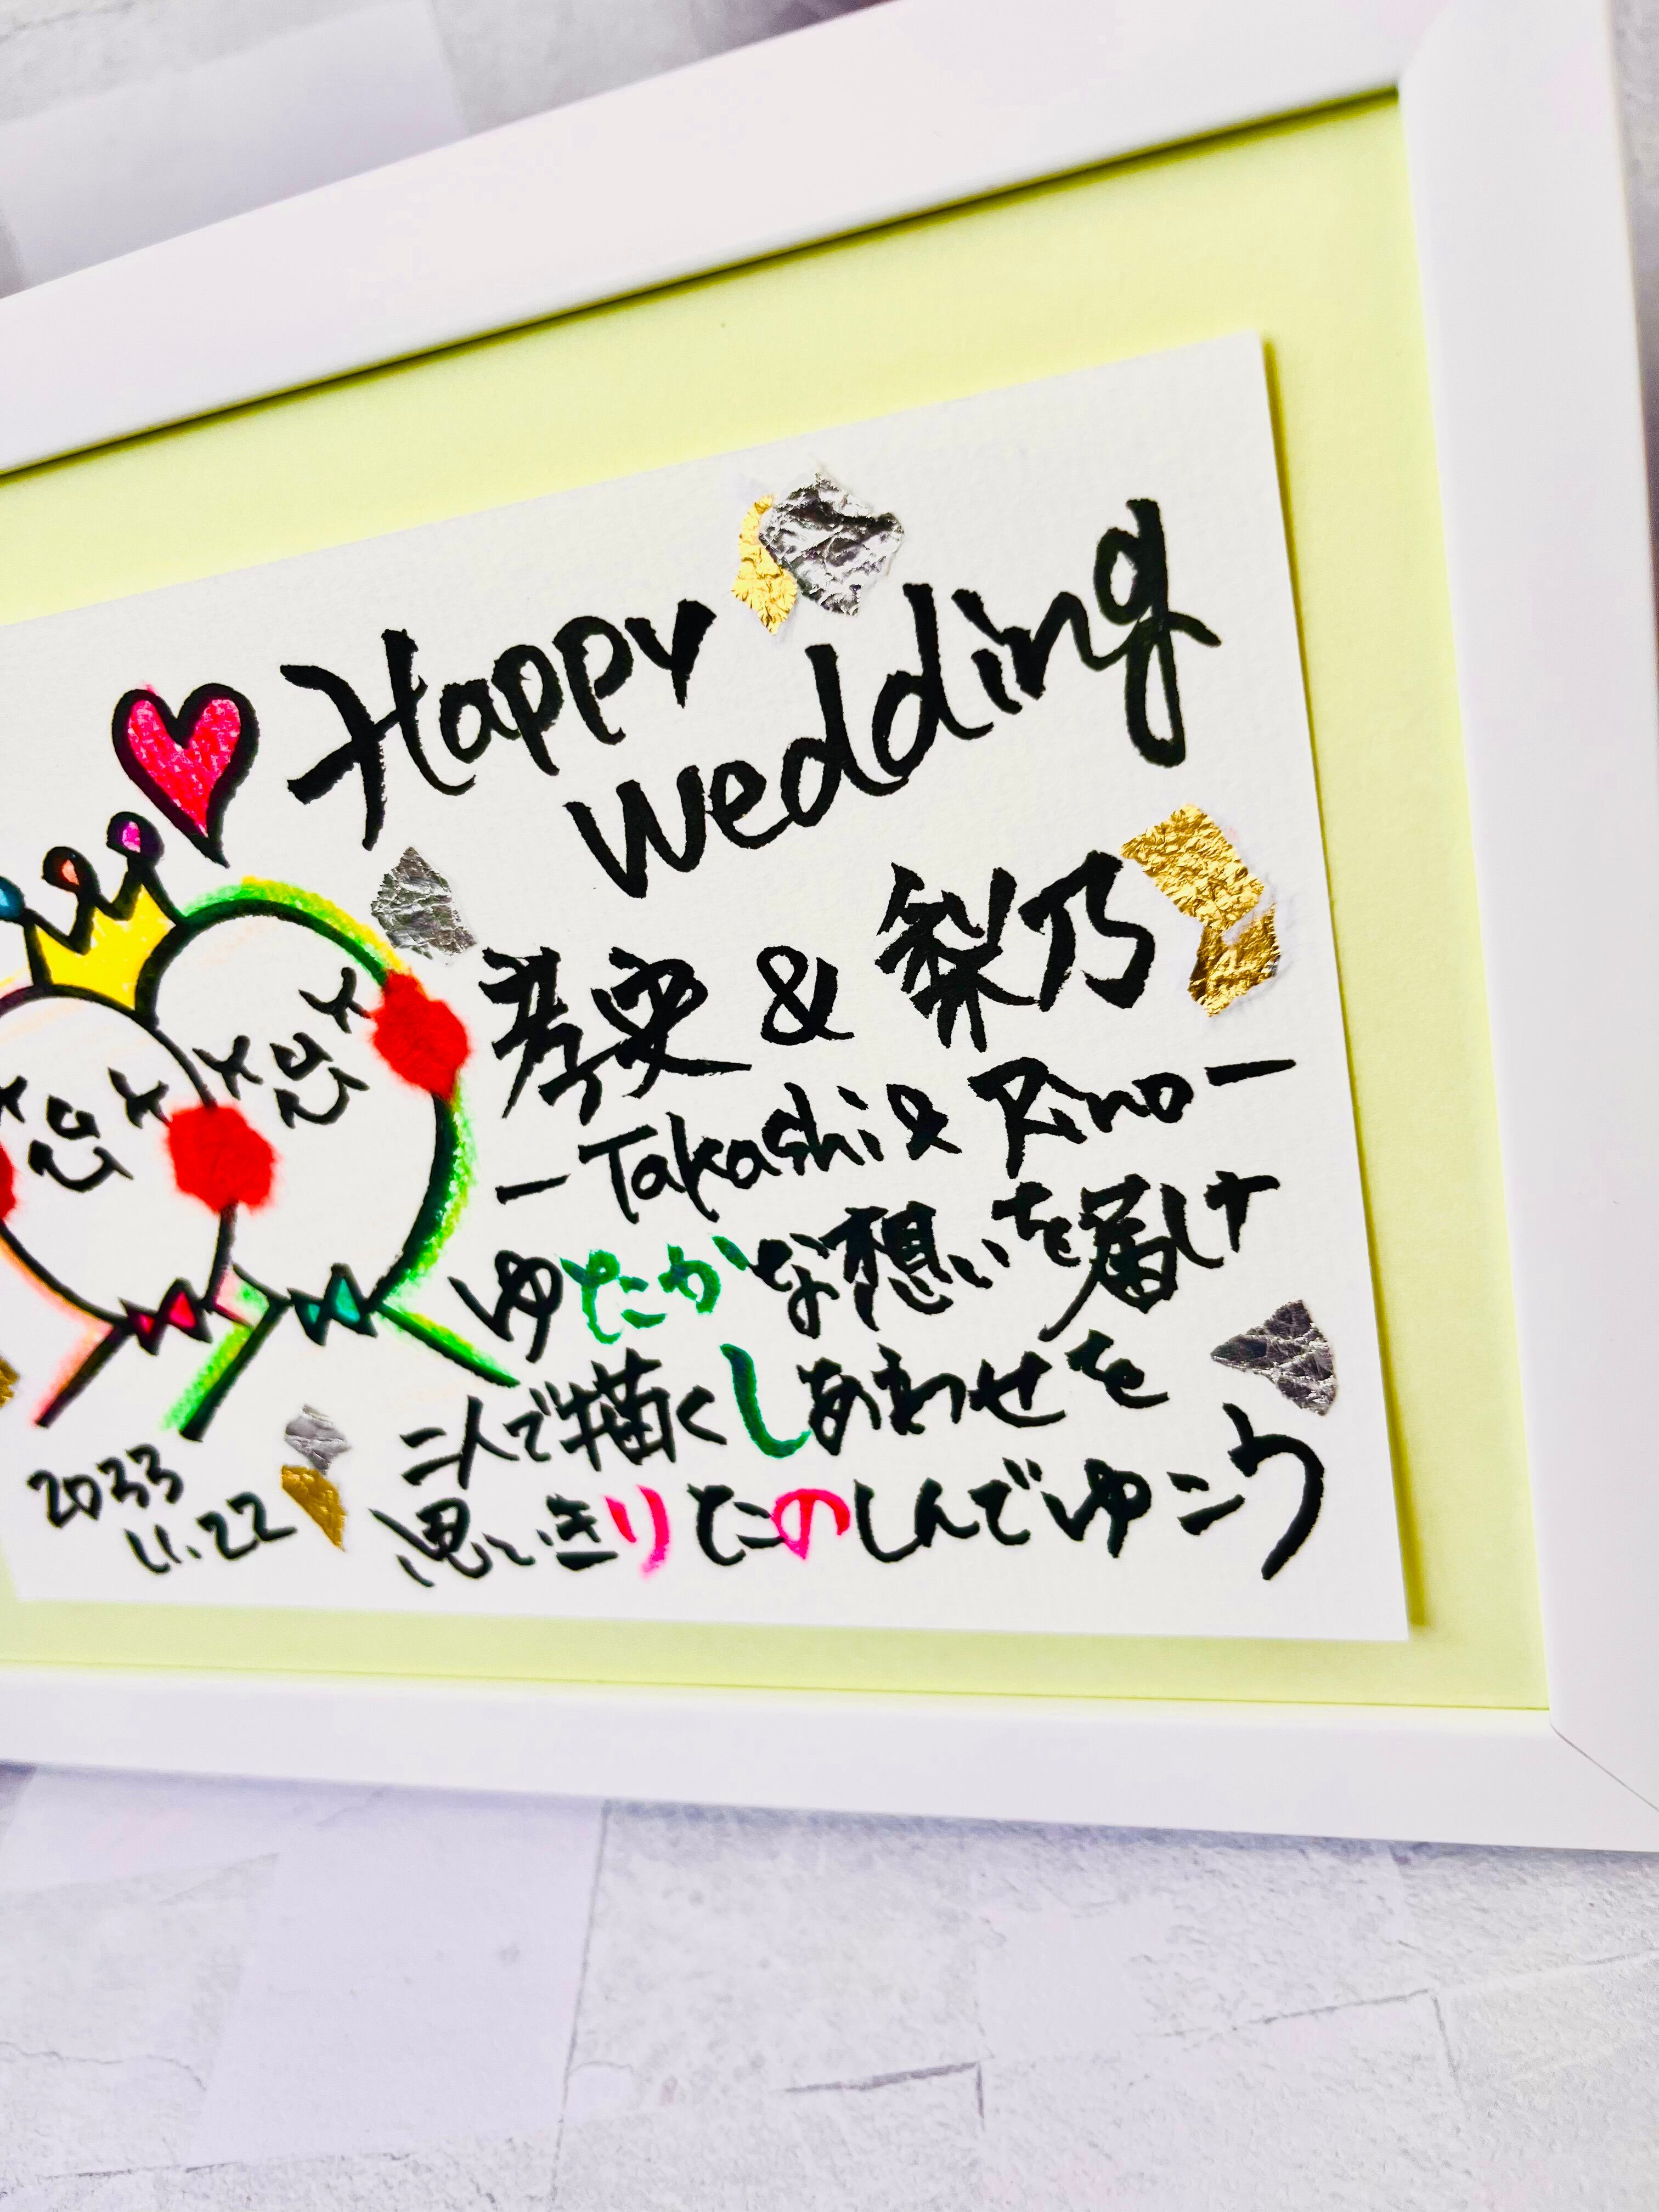 Happy
Wedding
孝史 & 梨乃
-Takashi & Rino-
ゆたかな想いを届け
二人で描くしあわせを
思いきりたのしんでゆこう
2033
11.22